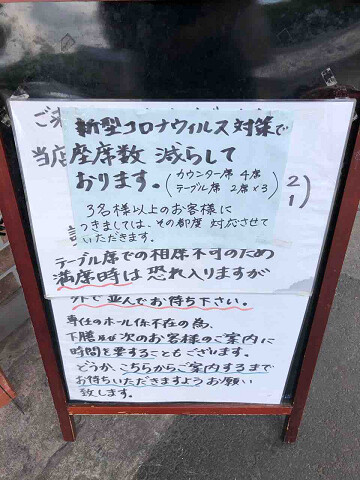 ご来
当店
新型コロナウィルス対策で
座席数 減らして
おります。(カウンター席 4席
テーブル席 2席×3)
2
1)
3名様以上のお客様に
つきましては、その都度 対応させて
いただきます。
テーブル席での相席不可のため
満席時は恐れ入りますが
外で並んでお待ち下さい。
専任のホール係不在の為、
下膳及び次のお客様のご案内に
時間を要することもございます。
どうか、こちらからご案内するまで
お待ちいただきますようお願い
致します。